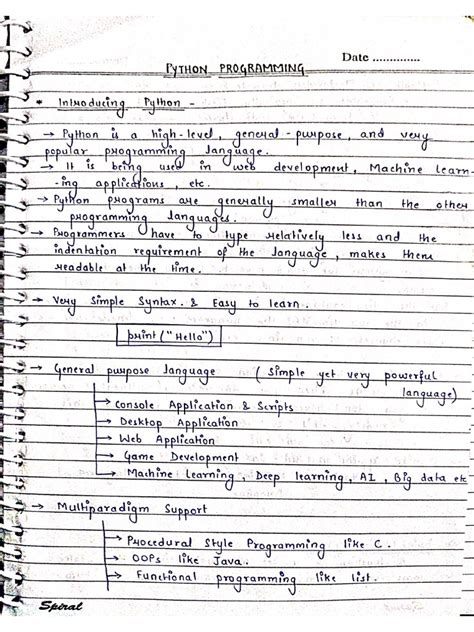 Date ..............
PYTHON PROGRAMMING
* Introducing Python -
→ Python is a high-level, general-purpose, and very
popular programming language.
→ It is being used in web development, Machine Learn-
-ing applications, etc.
→ Python programs are generally smaller than the other
programming languages.
→ Programmers have to type relatively less and the
indentation requirement of the language, makes them
readable at the time.
→ Very Simple Syntax. & Easy to learn.
print ("Hello")
→ General purpose language (simple yet very powerful
language)
→ Console Application & Scripts
→ Desktop Application
→ Web Application
→ Game Development
→ Machine Learning, Deep learning, AI, Big data etc
→ Multiparadigm Support
→ Procedural Style Programming like C.
→ OOPs like Java.
→ Functional programming like list.
Spiral